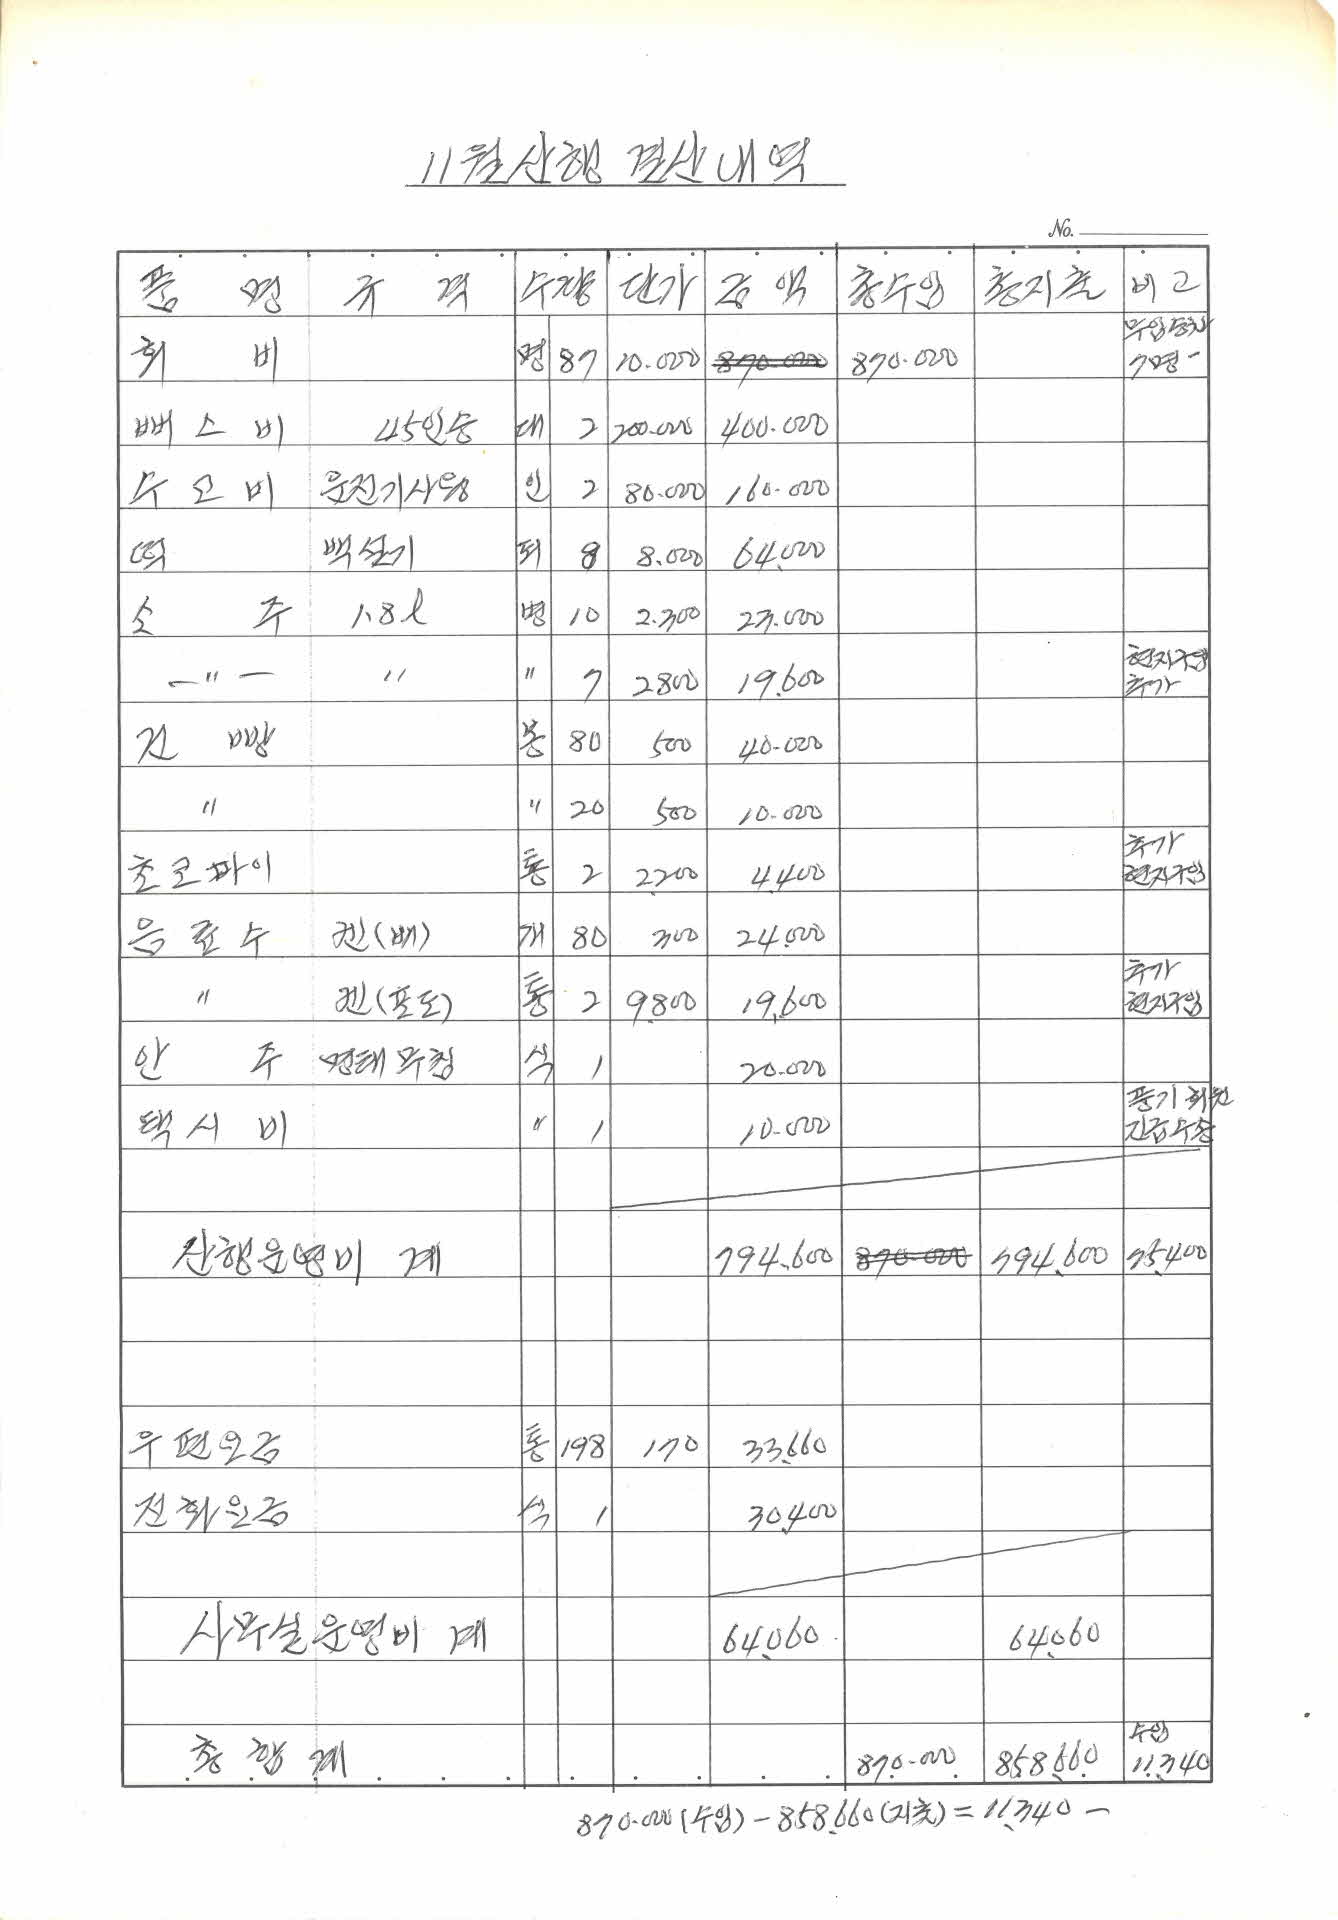 11월 산행 결산내역
No.
품 명 규 격 수량 단가 금액 총수입 총지출 비고
회 비 명 87 10.000 870.000 870.000 무임승차 7명-
뻐스비 45인승 대 2 200.000 400.000
수고비 운전기사용 인 2 80.000 160.000
떡 백설기 되 8 8.000 64.000
소 주 1.8ℓ 병 10 2.300 23.000
—〃— 〃 〃 7 2800 19.600 현지구입 추가
건 빵 봉 80 500 40.000
〃 〃 20 500 10.000
초코파이 통 2 2.200 4.400 추가 현지구입
음료수 캔(배) 개 80 300 24.000
〃 캔(포도) 통 2 9.800 19.600 추가 현지구입
안 주 명태무침 식 1 20.000
택시비 〃 1 10.000 풍기회원 긴급수송
산행운영비 계 794.600 870.000 794.600 75.400
우편요금 통 198 170 33.660
전화요금 식 1 30.400
사무실운영비 계 64.060 64.060
총 합 계 870.000 858.660 수입 11.340
870.000(수입) - 858.660(지출) = 11.340 -